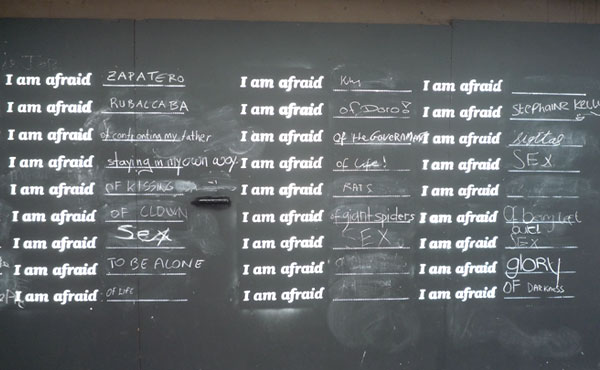 I am afraid ZAPATERO
I am afraid RUBALCABA
I am afraid of confronting my father
I am afraid staying in my own away
I am afraid OF KISSING
I am afraid OF CLOWN
I am afraid Sex
I am afraid TO BE ALONE
I am afraid OF LIFE
I am afraid
I am afraid of Doro!
I am afraid of the GOVERNMENT
I am afraid of life!
I am afraid RATS
I am afraid of giant spiders
I am afraid SEX
I am afraid
I am afraid
I am afraid
I am afraid Stephanie KELLY
I am afraid
I am afraid SEX
I am afraid
I am afraid Of being left
I am afraid SEX
I am afraid glory
I am afraid OF DARKNESS